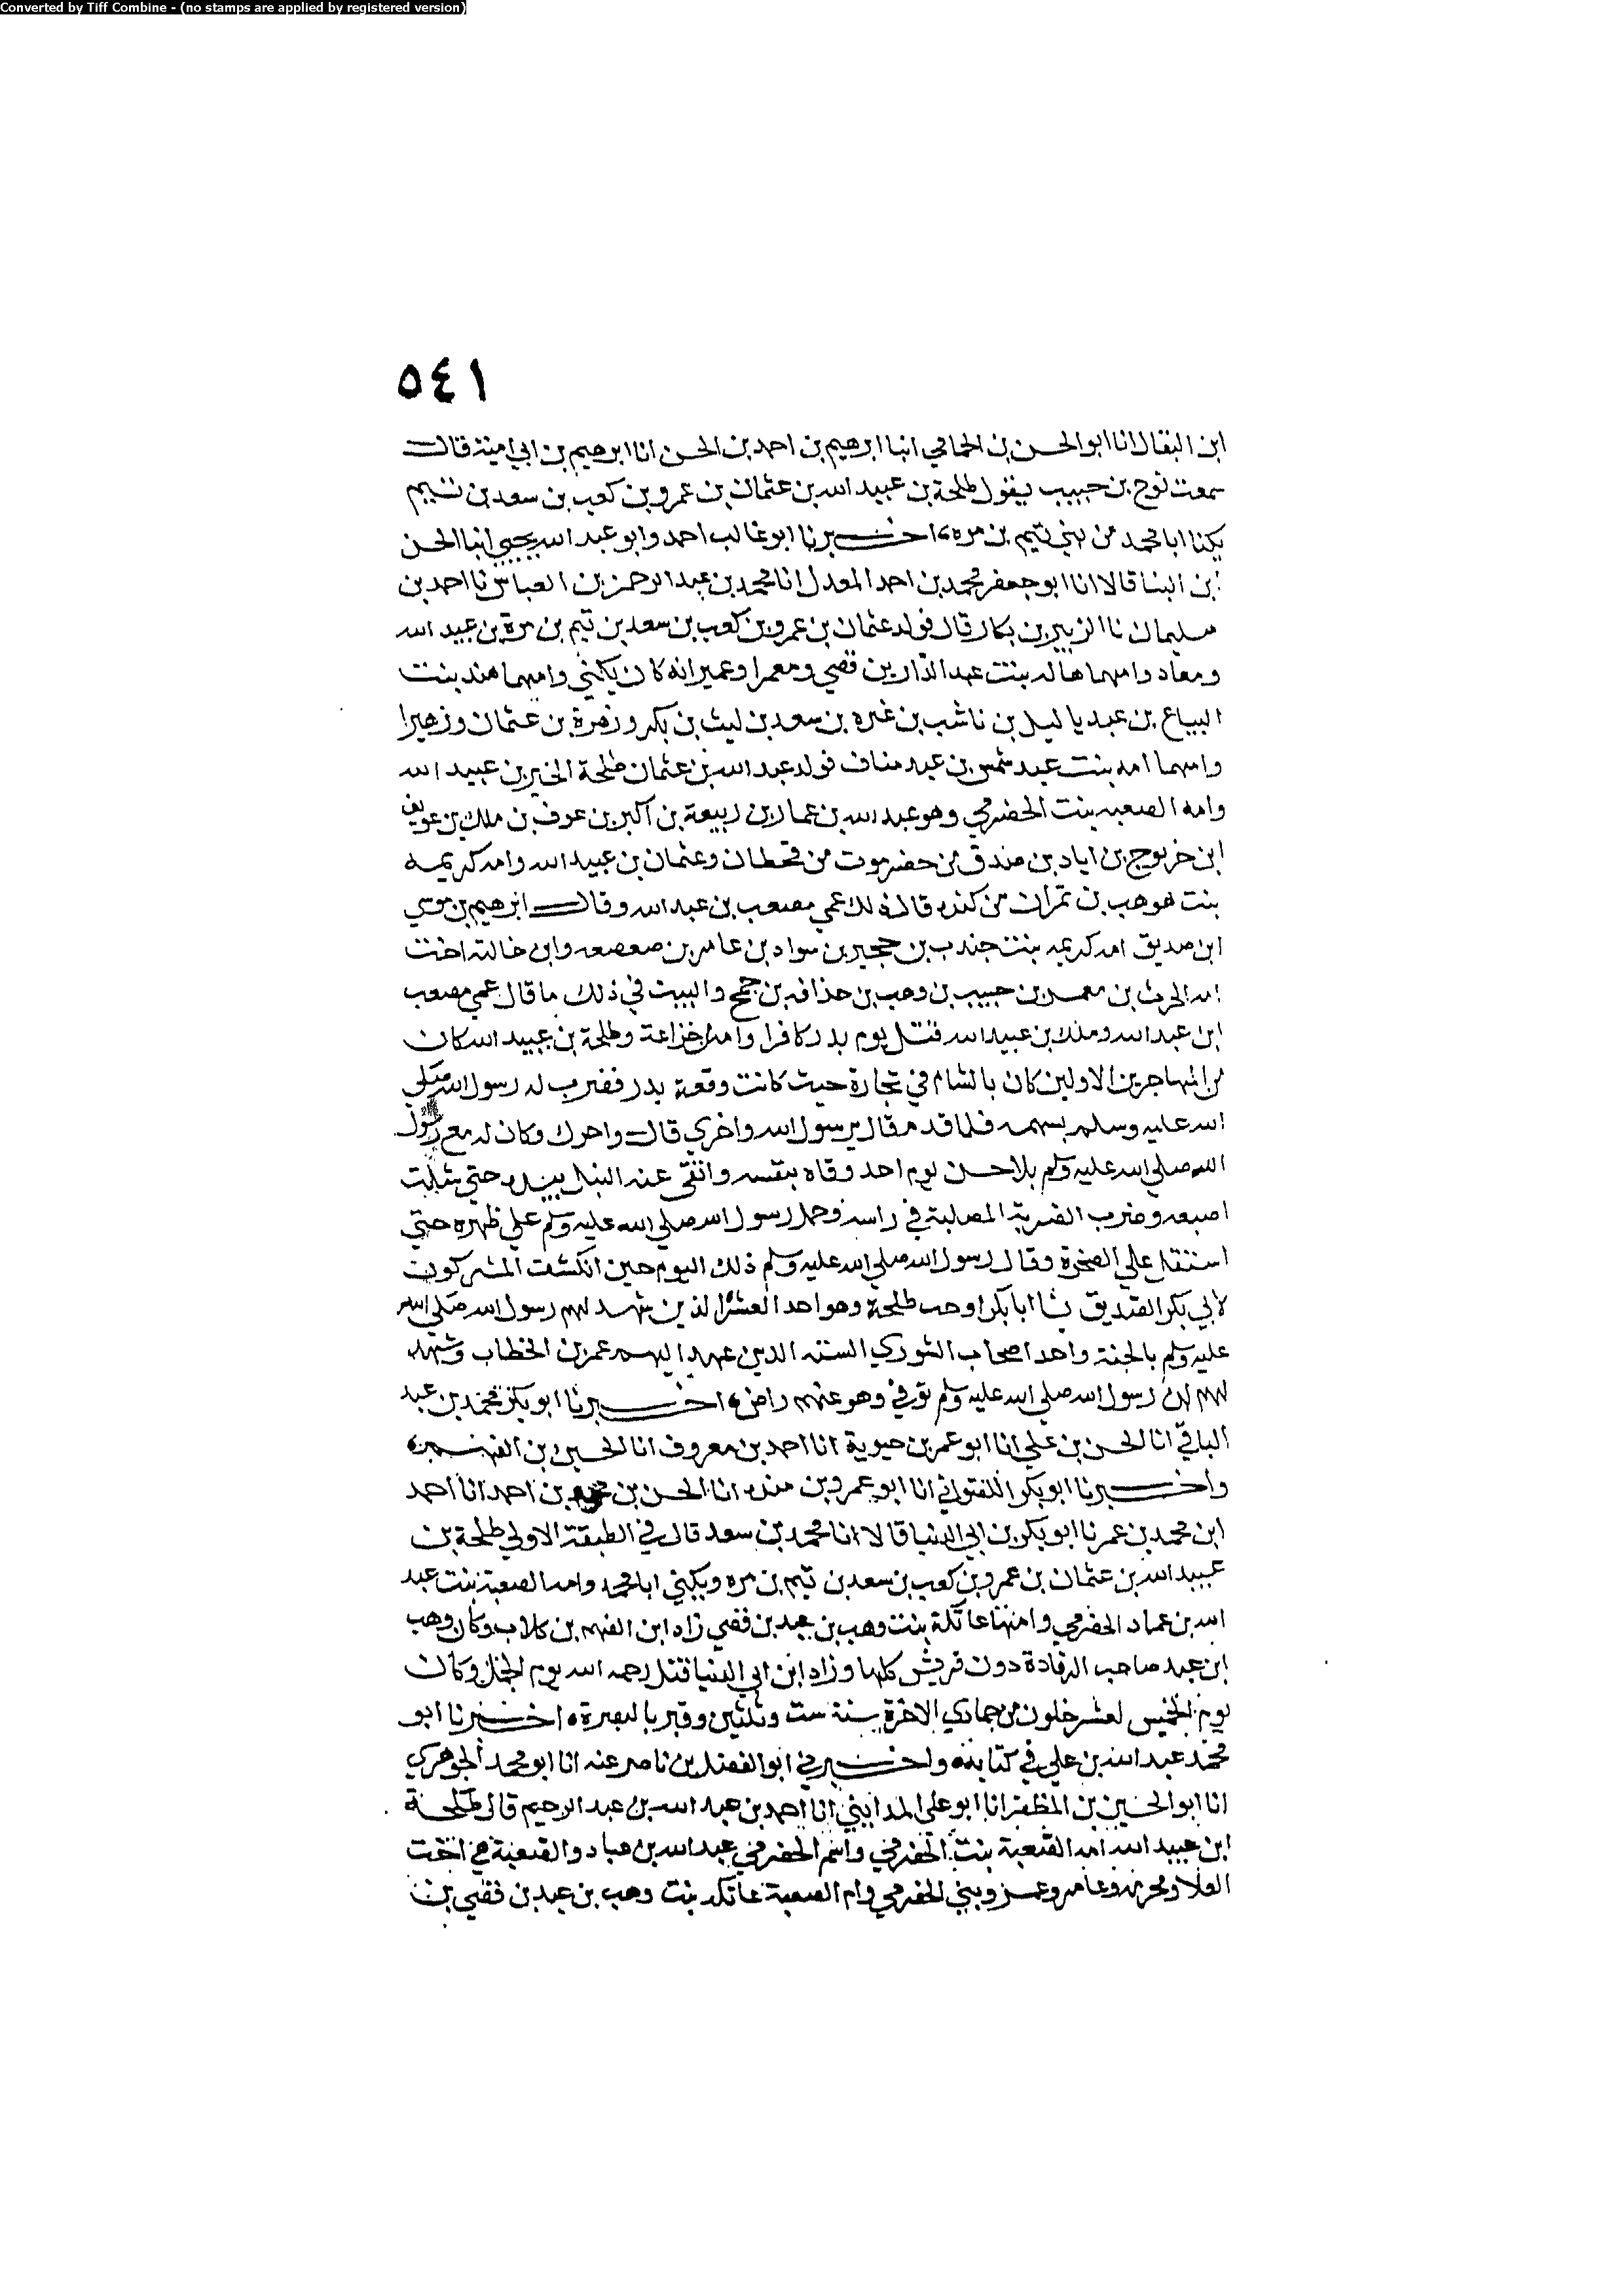 Converted by Tiff Combine - (no stamps are applied by registered version)
٥٤١
ابن البقال انا ابو الحسن بن الحمامي انبا ابرهيم بن احمد بن الحسن انا ابرهيم بن ابي امية قال
سمعت نوح بن حبيب يقول طلحة بن عبيد الله بن عثمان بن عمرو بن كعب بن سعد بن تيم
يكنا ابا محمد من بني تيم بن مره، اخبرنا ابو غالب احمد وابو عبد الله يحيى انبا الحسن
ابن البنا قالا انا ابو جعفر محمد بن احمد المعدل انا محمد بن عبد الرحمن بن العباس نا احمد بن
سليمان نا الزبير بن بكار قال فولد عثمان بن عمرو بن كعب بن سعد بن تيم بن مرة بن عبيد الله
ومعاد وامهما هاله بنت عبد الدار بن قصي ومعمرا وعميرا انه كان يكني وامهما هند بنت
البياع بن عبد ياليل بن ناشب بن غيره بن سعد بن ليث بن بكر وزهرة بن عثمان وزهيرا
وامهما امه بنت عبد شمس بن عبد مناف فولد عبد الله بن عثمان طلحة الخير بن عبيد الله
وامه الصعبه بنت الحضرمي وهو عبد الله بن عمار بن ربيعة بن اكبر بن عوف بن ملك بن عويف
ابن خزرج بن اياد بن صدق من حضرموت من قحطان وعثمان بن عبيد الله وامه كريمه
بنت موهب بن نمران من كنده قال ذلك عمي مصعب بن عبد الله وقال ابرهيم بن موسي
ابن صديق امه كريمه بنت جندب بن حجير بن سواد بن عامر بن صعصعه وابن خالته اخت
امه الحرث بن معمر بن حبيب بن وهب بن حذافه بن جمح والبيت في ذلك ما قال عمي مصعب
ابن عبد الله وملك بن عبيد الله قتل يوم بدر كافرا وامه خزاعة وطلحة بن عبيد الله كان
من المهاجرين الاولين كان بالشام في تجارة حيث كانت وقعة بدر فضرب له رسول الله صلي
الله عليه وسلم بسهمه فلما قدم قال يرسول الله واجري قال واجرك وكان له مع رسول
الله صلي الله عليه وسلم بلا حسن يوم احد وقاه بنفسه واتقي عنه النبل بيده حتي شلت
اصبعه وضرب الضربة المصلبة في راسه وحمل رسول الله صلي الله عليه وسلم علي ظهره حتي
استقل علي الصخرة وقال رسول الله صلي الله عليه وسلم ذلك اليوم حين انكشف المشركون
لابي بكر الصديق يا ابا بكر اوجب طلحة وهو احد العشرة الذين شهد لهم رسول الله صلي الله
عليه وسلم بالجنة واحد اصحاب الشوري الستة الدين عهد اليهم عمر بن الخطاب وشهد
لهم ان رسول الله صلي الله عليه وسلم توفي وهو عنهم راض، اخبرنا ابو بكر محمد بن عبد
الباقي انا الحسن بن علي انا ابو عمر بن حيوية انا احمد بن معروف انا الحسين بن الفهم،
واخبرنا ابو بكر اللفتواني انا ابو عمرو بن منده انا الحسن بن محمد بن احمد انا احمد
ابن محمد بن عمر نا ابو بكر بن ابي الدنيا قالا انا محمد بن سعد قال في الطبقة الاولي طلحة بن
عبيد الله بن عثمان بن عمرو بن كعب بن سعد بن تيم بن مره ويكني ابا محمد وامه الصعبة بنت عبد
الله بن عماد الحضرمي وامها عاتكة بنت وهب بن عبد بن قصي زاد ابن الفهم بن كلاب وكان وهب
ابن عبد صاحب الرفادة دون قريش كلها وزاد ابن ابي الدنيا قتل رحمه الله يوم الجمل وكان
يوم الخميس لعشر خلون من جمادي الاخرة سنة ست وثلثين وقبر بالبصرة، اخبرنا ابو
محمد عبد الله بن علي في كتابه واخبرني ابو الفضل بن ناصر عنه انا ابو محمد الجوهري
انا ابو الحسين بن المظفر انا ابو علي المدايني انا احمد بن عبد الله بن عبد الرحيم قال طلحة
ابن عبيد الله امه الصعبة بنت الحضرمي واسم الحضرمي عبد الله بن عباد والصعبة هي اخت
العلا ومحرمه وعامر وعمرو بني الحضرمي وام الصعبة عاتكه بنت وهب بن عبد بن قصي بن